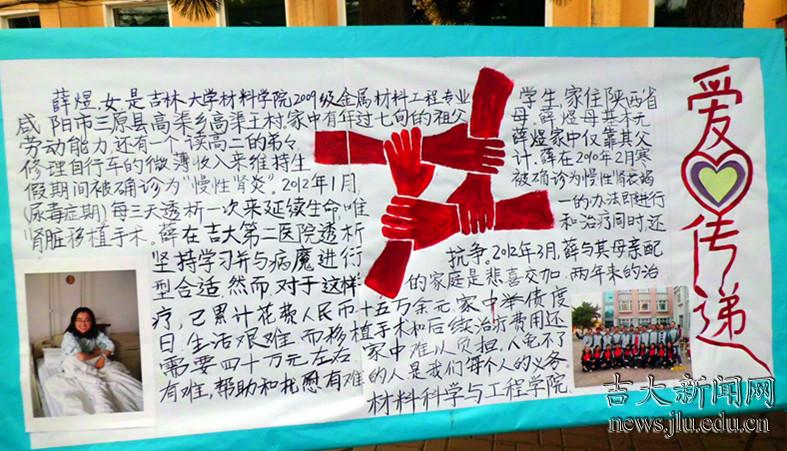 爱心传递
薛煜,女,是吉林大学材料学院2009级金属材料工程专业学生,家住陕西省
咸阳市三原县高渠乡高渠王村.家中有年过七旬的祖父母,薛煜母基本无
劳动能力,还有一个读高二的弟弟,薛煜家中仅靠其父
修理自行车的微薄收入来维持生计.薛在2010年2月寒
假期间被确诊为"慢性肾炎".2012年1月,被确诊为慢性肾衰竭
(尿毒症期)每三天透析一次来延续生命,唯一的办法即进行
肾脏移植手术.薛在吉大第二医院透析和治疗同时,还
坚持学习并与病魔进行抗争.2012年3月,薛与其母亲配
型合适.然而对于这样的家庭是悲喜交加,两年来的治
疗,已累计花费人民币十五万余元,家中举债度
日,生活艰难.而移植手术和后续治疗费用还
需要四十万元左右,家中难以负担.人免不了
有难,帮助和抚慰有难的人是我们每个人的义务
材料科学与工程学院
吉大新闻网
news.jlu.edu.cn